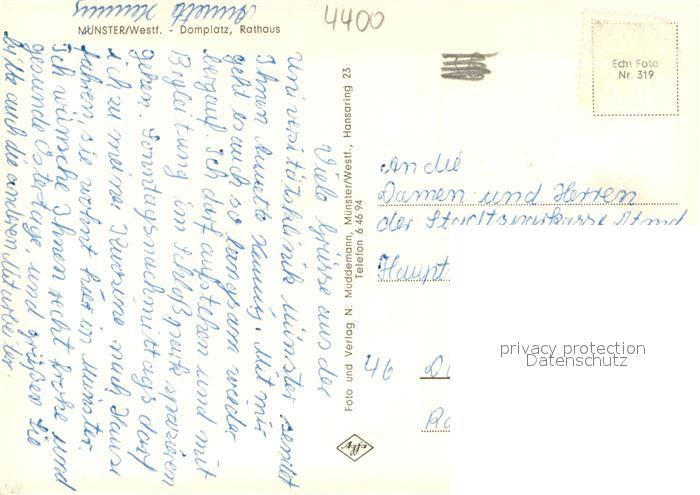 4400
MÜNSTER/Westf. - Domplatz, Rathaus
Echt Foto
Nr. 319
Viele Grüsse aus der
Universitätsklinik Münster sendet
Ihnen Annette Hennig. Mit mir
geht es auch so langsam wieder
bergauf. Ich darf aufstehen und mit
Begleitung im Schloßpark spazieren
gehen. Sonntagsnachmittags darf
ich zu meiner Kusine nach Hause
fahren sie wohnt hier in Münster.
Ich wünsche Ihnen recht frohe und
gesunde Ostertage und grüßen Sie
bitte auch die anderen Mitarbeiter.
Annette Hennig
Foto und Verlag N. Muddemann, Münster/Westf., Hansaring 23
Telefon 6 46 94
Agfa
An die
Damen und Herren
der Stadtsparkasse Dtmd
Haupt
46 Do
privacy protection
Datenschutz